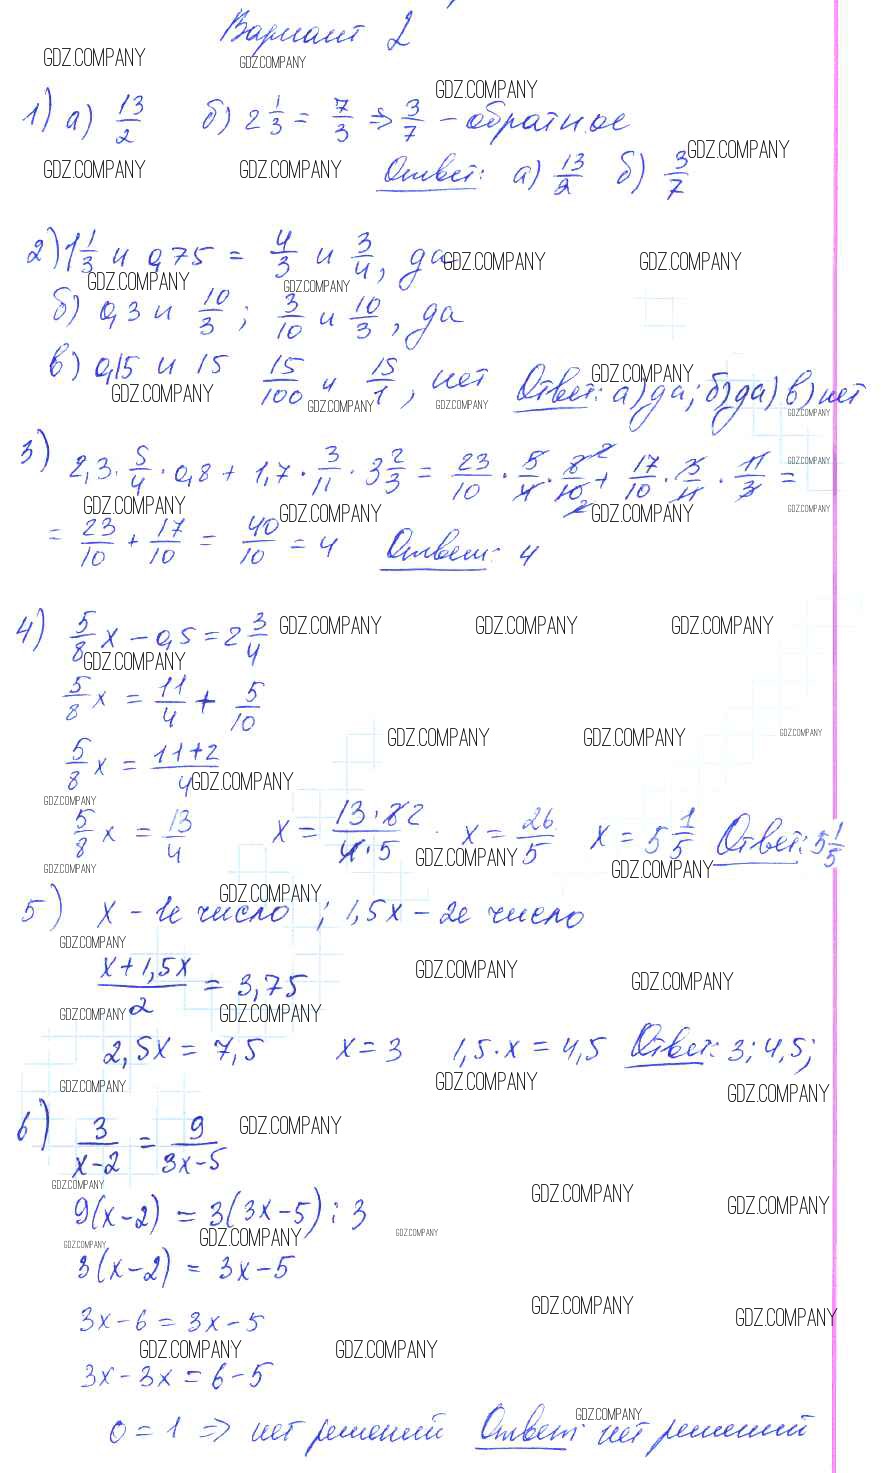 Вариант 2
1) а) 13/2 б) 2 1/3 = 7/3 ⇒ 3/7 – обратное
Ответ: а) 13/2 б) 3/7
2) 1 1/3 и 0,75 = 4/3 и 3/4, да
б) 0,3 и 10/3; 3/10 и 10/3, да
в) 0,15 и 15 15/100 и 15/1, нет Ответ: а) да; б) да) в) нет
3) 2,3 · 5/4 · 0,8 + 1,7 · 3/11 · 3 2/3 = 23/10 · 5/4 · 8 2/10 2 + 17/10 · 3/11 · 11/3 =
= 23/10 + 17/10 = 40/10 = 4 Ответ: 4
4) 5/8 x – 0,5 = 2 3/4
5/8 x = 11/4 + 5/10
5/8 x = 11+2/4
5/8 x = 13/4 x = 13·8 2/4·5 x = 26/5 x = 5 1/5 Ответ: 5 1/5
5) x – 1е число; 1,5x – 2е число
x+1,5x/2 = 3,75
2,5x = 7,5 x = 3 1,5·x = 4,5 Ответ: 3; 4,5;
6) 3/x–2 = 9/3x–5
9(x–2) = 3(3x–5) : 3
3(x–2) = 3x–5
3x–6 = 3x–5
3x–3x = 6–5
0 = 1 ⇒ нет решений Ответ: нет решений
GDZ.COMPANY